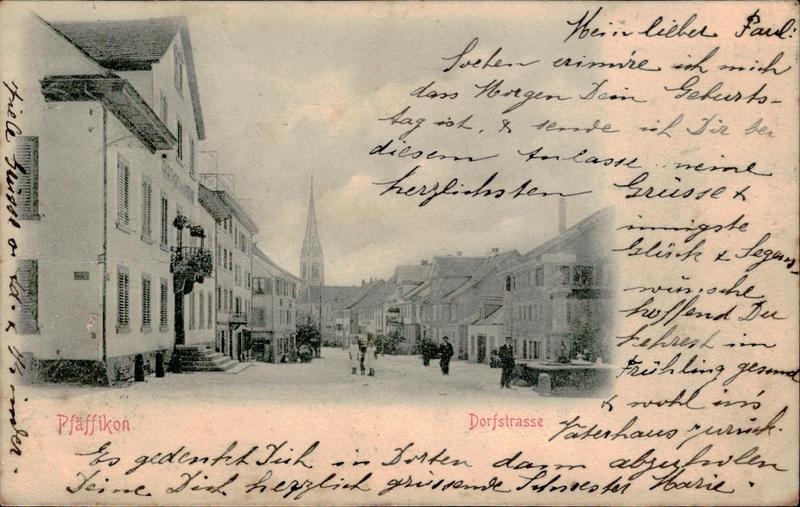 Mein lieber Paul:
Soeben erinn're ich mich
dass Morgen Dein Geburts-
tag ist, & sende ich Dir bei
diesem Anlasse meine
herzlichsten Grüsse &
innigste
Glück & Segens
wünsche
hoffend Du
kehrest im
Frühling gesund
& wohl in's
Vaterhaus zurück.
Es gedenkt Dich in Dorten dann abzuholen
Deine Dich herzlich grüssende Schwester Marie.
Viele Grüsse v. &
Kinder
Pfäffikon
Dorfstrasse